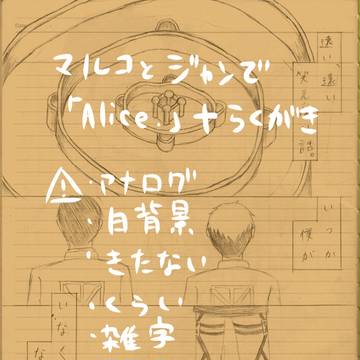 マルコとジャンで
「Alice.」+らくがき
⚠・アナログ
・白背景
・きたない
・くらい
・雑字
遠い、遠い
笑え
話。
いつか
僕が
いなく
な